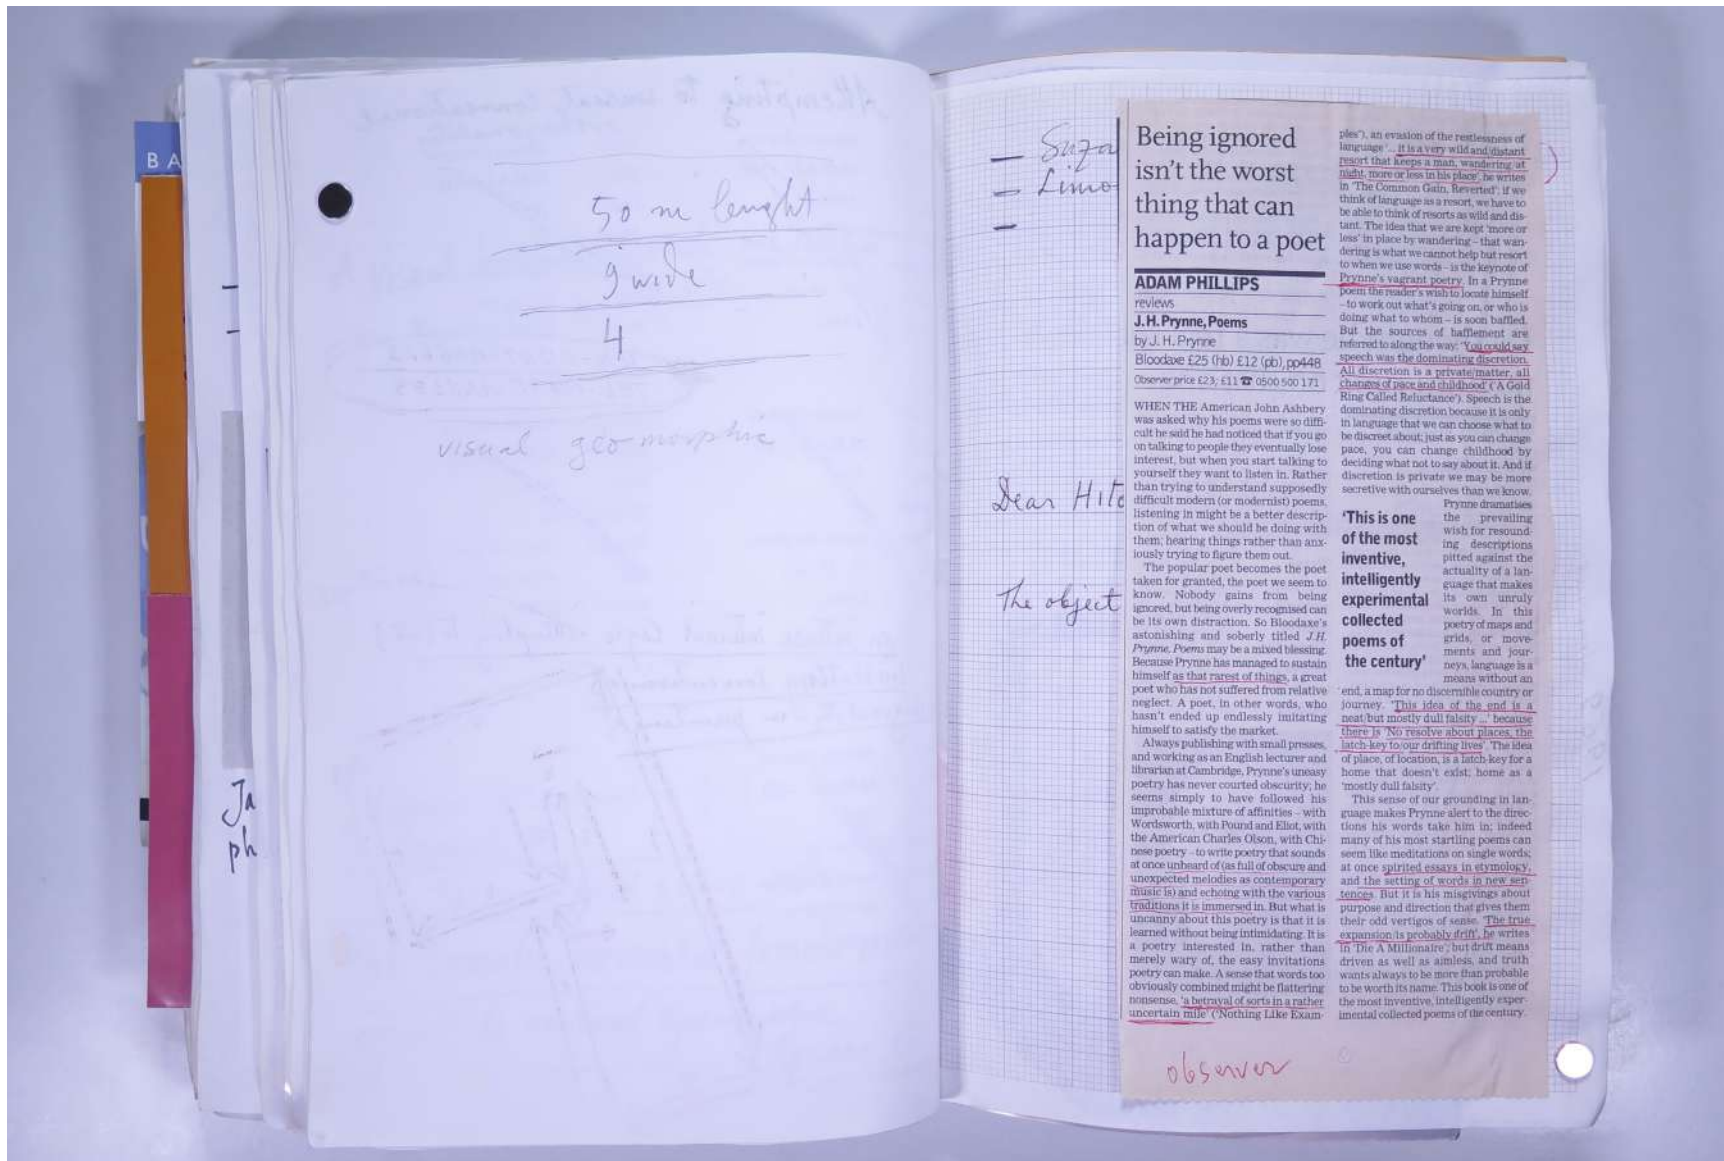 BA
Ja
ph
50 m lenght
9 wide
4
visual geomorphic
Suza
Limo
Dear Hitc
The object
Being ignored
isn't the worst
thing that can
happen to a poet
ADAM PHILLIPS
reviews
J.H. Prynne, Poems
by J. H. Prynne
Bloodaxe £25 (hb) £12 (pb), pp448
Observer price £23; £11 ☎ 0500 500 171
WHEN THE American John Ashbery
was asked why his poems were so diffi-
cult he said he had noticed that if you go
on talking to people they eventually lose
interest, but when you start talking to
yourself they want to listen in. Rather
than trying to understand supposedly
difficult modern (or modernist) poems,
listening in might be a better descrip-
tion of what we should be doing with
them; hearing things rather than anx-
iously trying to figure them out.
The popular poet becomes the poet
taken for granted, the poet we seem to
know. Nobody gains from being
ignored, but being overly recognised can
be its own distraction. So Bloodaxe's
astonishing and soberly titled J.H.
Prynne, Poems may be a mixed blessing.
Because Prynne has managed to sustain
himself as that rarest of things, a great
poet who has not suffered from relative
neglect. A poet, in other words, who
hasn't ended up endlessly imitating
himself to satisfy the market.
Always publishing with small presses,
and working as an English lecturer and
librarian at Cambridge, Prynne's uneasy
poetry has never courted obscurity; he
seems simply to have followed his
improbable mixture of affinities – with
Wordsworth, with Pound and Eliot, with
the American Charles Olson, with Chi-
nese poetry – to write poetry that sounds
at once unheard of (as full of obscure and
unexpected melodies as contemporary
music is) and echoing with the various
traditions it is immersed in. But what is
uncanny about this poetry is that it is
learned without being intimidating. It is
a poetry interested in, rather than
merely wary of, the easy invitations
poetry can make. A sense that words too
obviously combined might be flattering
nonsense, 'a betrayal of sorts in a rather
uncertain mile' ('Nothing Like Exam-
ples'), an evasion of the restlessness of
language '... it is a very wild and/distant
resort that keeps a man, wandering/at
night, more or less in his place', he writes
in 'The Common Gain, Reverted'; if we
think of language as a resort, we have to
be able to think of resorts as wild and dis-
tant. The idea that we are kept 'more or
less' in place by wandering – that wan-
dering is what we cannot help but resort
to when we use words – is the keynote of
Prynne's vagrant poetry. In a Prynne
poem the reader's wish to locate himself
– to work out what's going on, or who is
doing what to whom – is soon baffled.
But the sources of bafflement are
referred to along the way: 'You could say
speech was the dominating discretion.
All discretion is a private/matter, all
changes of pace and childhood' ('A Gold
Ring Called Reluctance'). Speech is the
dominating discretion because it is only
in language that we can choose what to
be discreet about; just as you can change
pace, you can change childhood by
deciding what not to say about it. And if
discretion is private we may be more
secretive with ourselves than we know.
Prynne dramatises
the prevailing
wish for resound-
ing descriptions
pitted against the
actuality of a lan-
guage that makes
its own unruly
worlds. In this
poetry of maps and
grids, or move-
ments and jour-
neys, language is a
means without an
end, a map for no discernible country or
journey. 'This idea of the end is a
neat/but mostly dull falsity ...' because
there is 'No resolve about places, the
latch-key to/our drifting lives'. The idea
of place, of location, is a latch-key for a
home that doesn't exist; home as a
'mostly dull falsity'.
This sense of our grounding in lan-
guage makes Prynne alert to the direc-
tions his words take him in; indeed
many of his most startling poems can
seem like meditations on single words;
at once spirited essays in etymology,
and the setting of words in new sen-
tences. But it is his misgivings about
purpose and direction that gives them
their odd vertigos of sense. 'The true
expansion/is probably drift', he writes
in 'Die A Millionaire'; but drift means
driven as well as aimless, and truth
wants always to be more than probable
to be worth its name. This book is one of
the most inventive, intelligently exper-
imental collected poems of the century.
'This is one
of the most
inventive,
intelligently
experimental
collected
poems of
the century'
observer